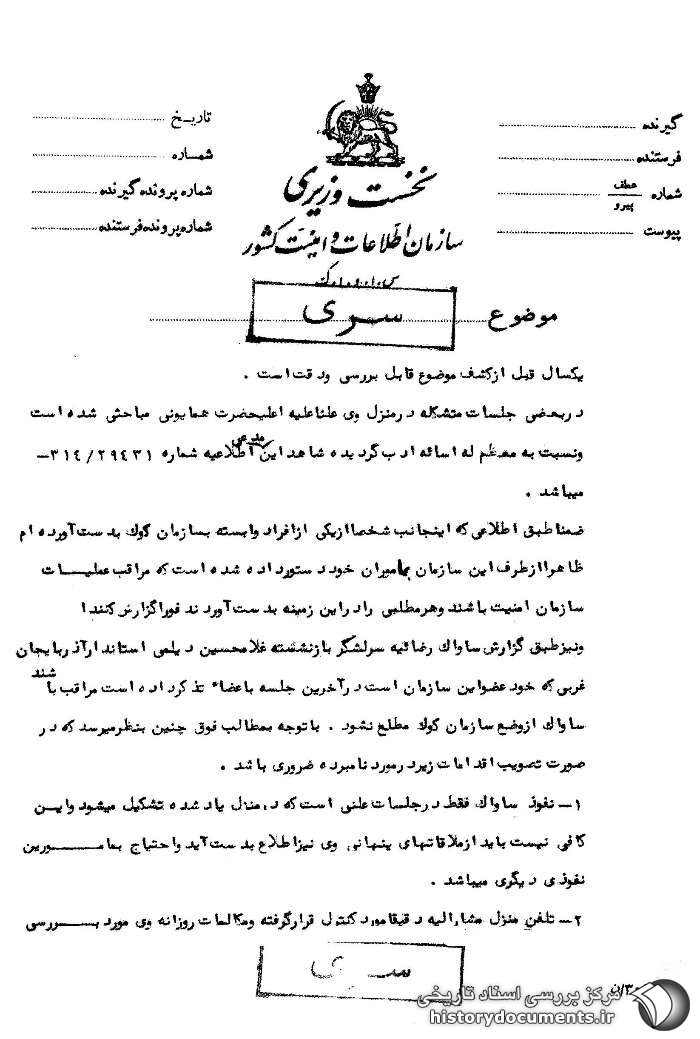 گیرنده
فرستنده
شماره عطف پیرو
پیوست
تاریخ
شماره
شماره پرونده گیرنده
شماره پرونده فرستنده
نخست وزیری
سازمان اطلاعات و امنیت کشور
س.ا.و.ا.ک
موضوع
سری
یکسال قبل ازکشف موضوع قابل بررسی ودقت است .
دربعضی جلسات متشکله درمنزل وی علناعلیه اعلیحضرت همایونی مباحثی شده است
ونسبت به معظم له اسائه ادب گردیده شاهد این مدعی اطلاعیه شماره ۲۹۴۳۱/۳۱۴-
میباشد .
ضمناطبق اطلاعی که اینجانب شخصاازیکی ازافراد وابسته بسازمان کوك بدست آورده ام
ظاهراازطرف این سازمان بمامبوران خود دستورداده شده است که مراقب عملیات
سازمان امنیت باشند وهرمطلبی رادراین زمینه بدست آوردند فوراگزارش کنند!
ونیزطبق گزارش ساواك رضائیه سرلشگر بازنشسته غلامحسین دیلمی استاندارآذربایجان
غربی که خودعضواین سازمان است درآخرین جلسه باعضاء تذکرداده است مراقب باشند
ساواك ازوضع سازمان کوك مطلع نشود . باتوجه بمطالب فوق چنین بنظرمیرسد که در
صورت تصویب اقدامات زیردرمورد نامبرده ضروری باشد .
۱- نفوذ ساواك فقط درجلسات علنی است که درمنزل یادشده تشکیل میشود واین
کافی نیست باید ازملاقاتهای پنهانی وی نیزاطلاع بدست آید واحتیاج بمامورین
نفوذی دیگری میباشد .
۲- تلفن منزل مشارالیه دقیقامورد کنترل قرارگرفته ومکالمات روزانه وی مورد بررسی
سری
مرکز بررسی اسناد تاریخی
historydocuments.ir